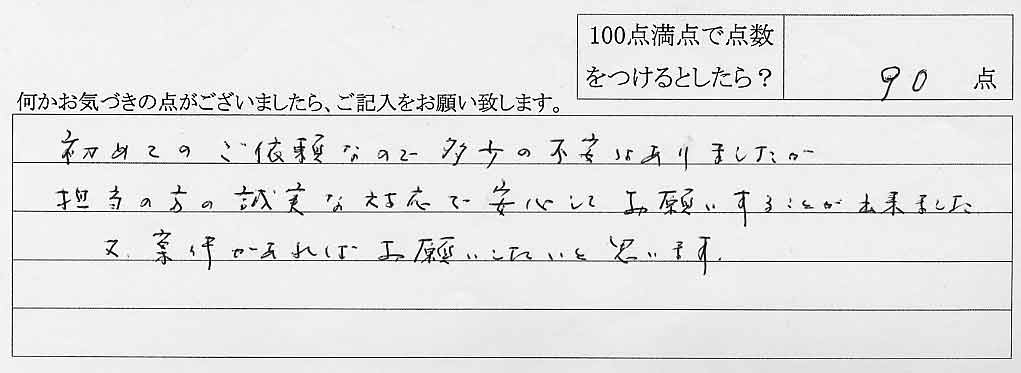 100点満点で点数
をつけるとしたら？
90 点
何かお気づきの点がございましたら、ご記入をお願い致します。
初めてのご依頼なので多少の不安はありましたが
担当の方の誠実な対応で安心してお願いすることが出来ました
又、案件があればお願いしたいと思います。